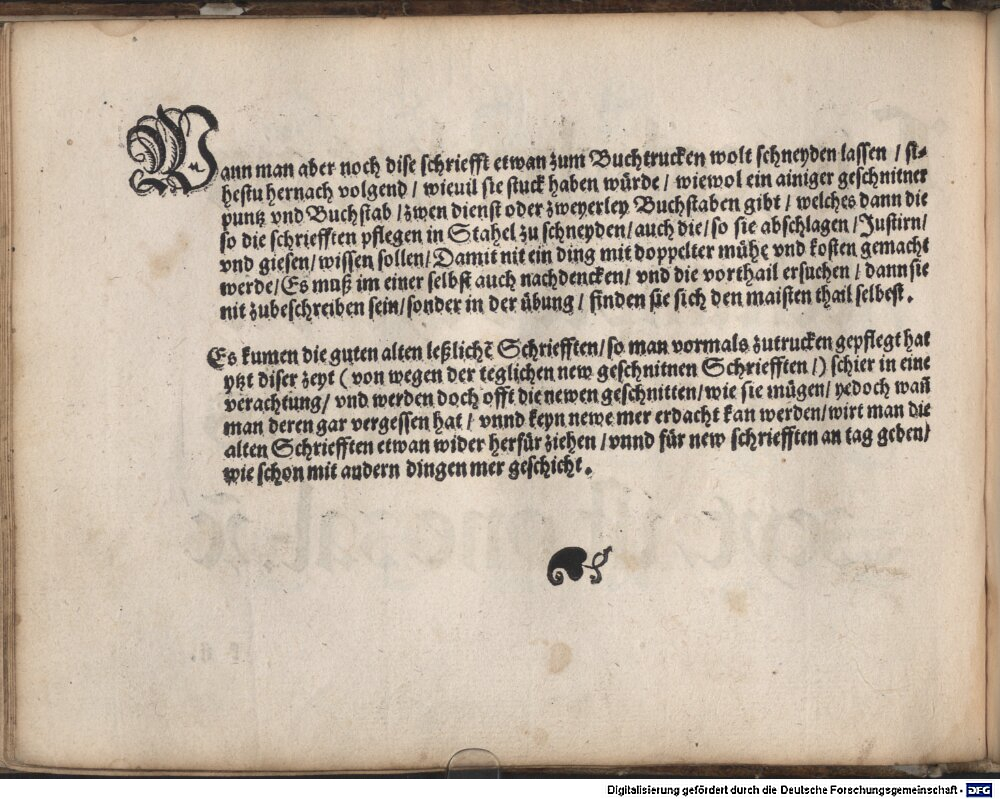 Wann man aber noch dise schriefft etwan zum Buchtrucken wolt schneyden lassen / si-
hestu hernach volgend / wieuil sie stuck haben würde / wiewol ein ainiger geschnitner
puntz vnd Buchstab / zwen dienst oder zweyerley Buchstaben gibt / welches dann die
so die schriefften pflegen in Stahel zu schneyden / auch die / so sie abschlagen / Justirn /
vnd giesen / wissen sollen / Damit nit ein ding mit doppelter mühe vnd kosten gemacht
werde / Es muß im einer selbst auch nachdencken / vnd die vorthail ersuchen / dann sie
nit zubeschreiben sein / sonder in der übung / finden sie sich den maisten thail selbest.
Es kumen die guten alten leßlichē Schriefften / so man vormals zutrucken gepflegt hat
ytzt diser zeyt ( von wegen der teglichen new geschnitnen Schriefften /) schier in eine
verachtung / vnd werden doch offt die newen geschnitten / wie sie mügen / yedoch wañ
man deren gar vergessen hat / vnnd keyn newe mer erdacht kan werden / wirt man die
alten Schriefften etwan wider herfür ziehen / vnnd für new schriefften an tag geben /
wie schon mit andern dingen mer geschicht.
Digitalisierung gefördert durch die Deutsche Forschungsgemeinschaft - DFG